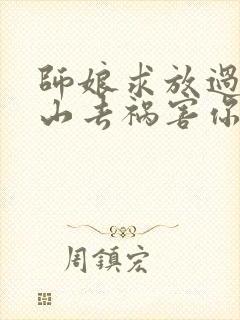 師娘求放過
山去禍害你
周鎮宏